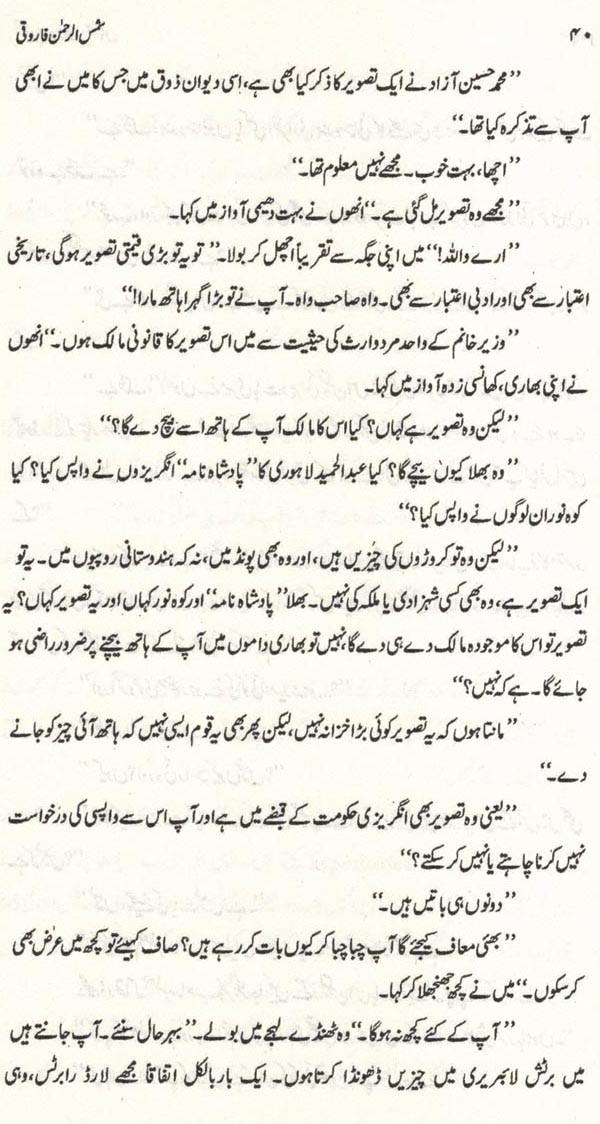 ۴۰ شمس الرحمٰن فاروقی
”محمد حسین آزاد نے ایک تصویر کا ذکر کیا بھی ہے، اسی دیوان ذوق میں جس کا میں نے ابھی
آپ سے تذکرہ کیا تھا۔“
”اچھا، بہت خوب۔ مجھے نہیں معلوم تھا۔“
”مجھے وہ تصویر مل گئی ہے“ انھوں نے بہت دھیمی آواز میں کہا۔
”ارے واللہ!“ میں اپنی جگہ سے تقریباً اچھل کر بولا۔” تو یہ تو بڑی قیمتی تصویر ہوگی، تاریخی
اعتبار سے بھی اور ادبی اعتبار سے بھی۔ واہ صاحب واہ۔ آپ نے تو بڑا گہرا ہاتھ مارا!“
”وزیر خانم کے واحد مرد وارث کی حیثیت سے میں اس تصویر کا قانونی مالک ہوں۔“ انھوں
نے اپنی بھاری، کھانسی زدہ آواز میں کہا۔
”لیکن وہ تصویر ہے کہاں؟ کیا اس کا مالک آپ کے ہاتھ اسے بیچ دے گا؟“
”وہ بھلا کیوں بیچے گا؟ کیا عبدالحمید لاہوری کا ”پادشاہ نامہ“ انگریزوں نے واپس کیا؟ کیا
کوہ نور ان لوگوں نے واپس کیا؟“
”لیکن وہ تو کروڑوں کی چیزیں ہیں، اور وہ بھی پونڈ میں، نہ کہ ہندوستانی روپیوں میں۔ یہ تو
ایک تصویر ہے، وہ بھی کسی شہزادی یا ملکہ کی نہیں۔ بھلا ”پادشاہ نامہ“ اور کوہ نور کہاں اور یہ تصویر کہاں؟ یہ
تصویر تو اس کا موجودہ مالک دے ہی دے گا، نہیں تو بھاری داموں میں آپ کے ہاتھ بیچنے پر ضرور راضی ہو
جائے گا۔ ہے کہ نہیں؟“
”مانتا ہوں کہ یہ تصویر کوئی بڑا خزانہ نہیں، لیکن پھر بھی یہ قوم ایسی نہیں کہ ہاتھ آئی چیز کو جانے
دے۔“
”یعنی وہ تصویر بھی انگریزی حکومت کے قبضے میں ہے اور آپ اس سے واپسی کی درخواست
نہیں کرنا چاہتے یا نہیں کر سکتے؟“
”دونوں ہی باتیں ہیں۔“
”بھئی معاف کیجئے گا آپ چبا چبا کر کیوں بات کر رہے ہیں؟ صاف کہیئے تو کچھ میں عرض بھی
کر سکوں۔“ میں نے کچھ جھنجھلا کر کہا۔
”آپ کے کئے کچھ نہ ہوگا۔“ وہ ٹھنڈے لہجے میں بولے۔ ”بہر حال سنئے۔ آپ جانتے ہیں
میں برٹش لائبریری میں چیزیں ڈھونڈا کرتا ہوں۔ ایک بار بالکل اتفاقاً مجھے لارڈ رابرٹس، وہی